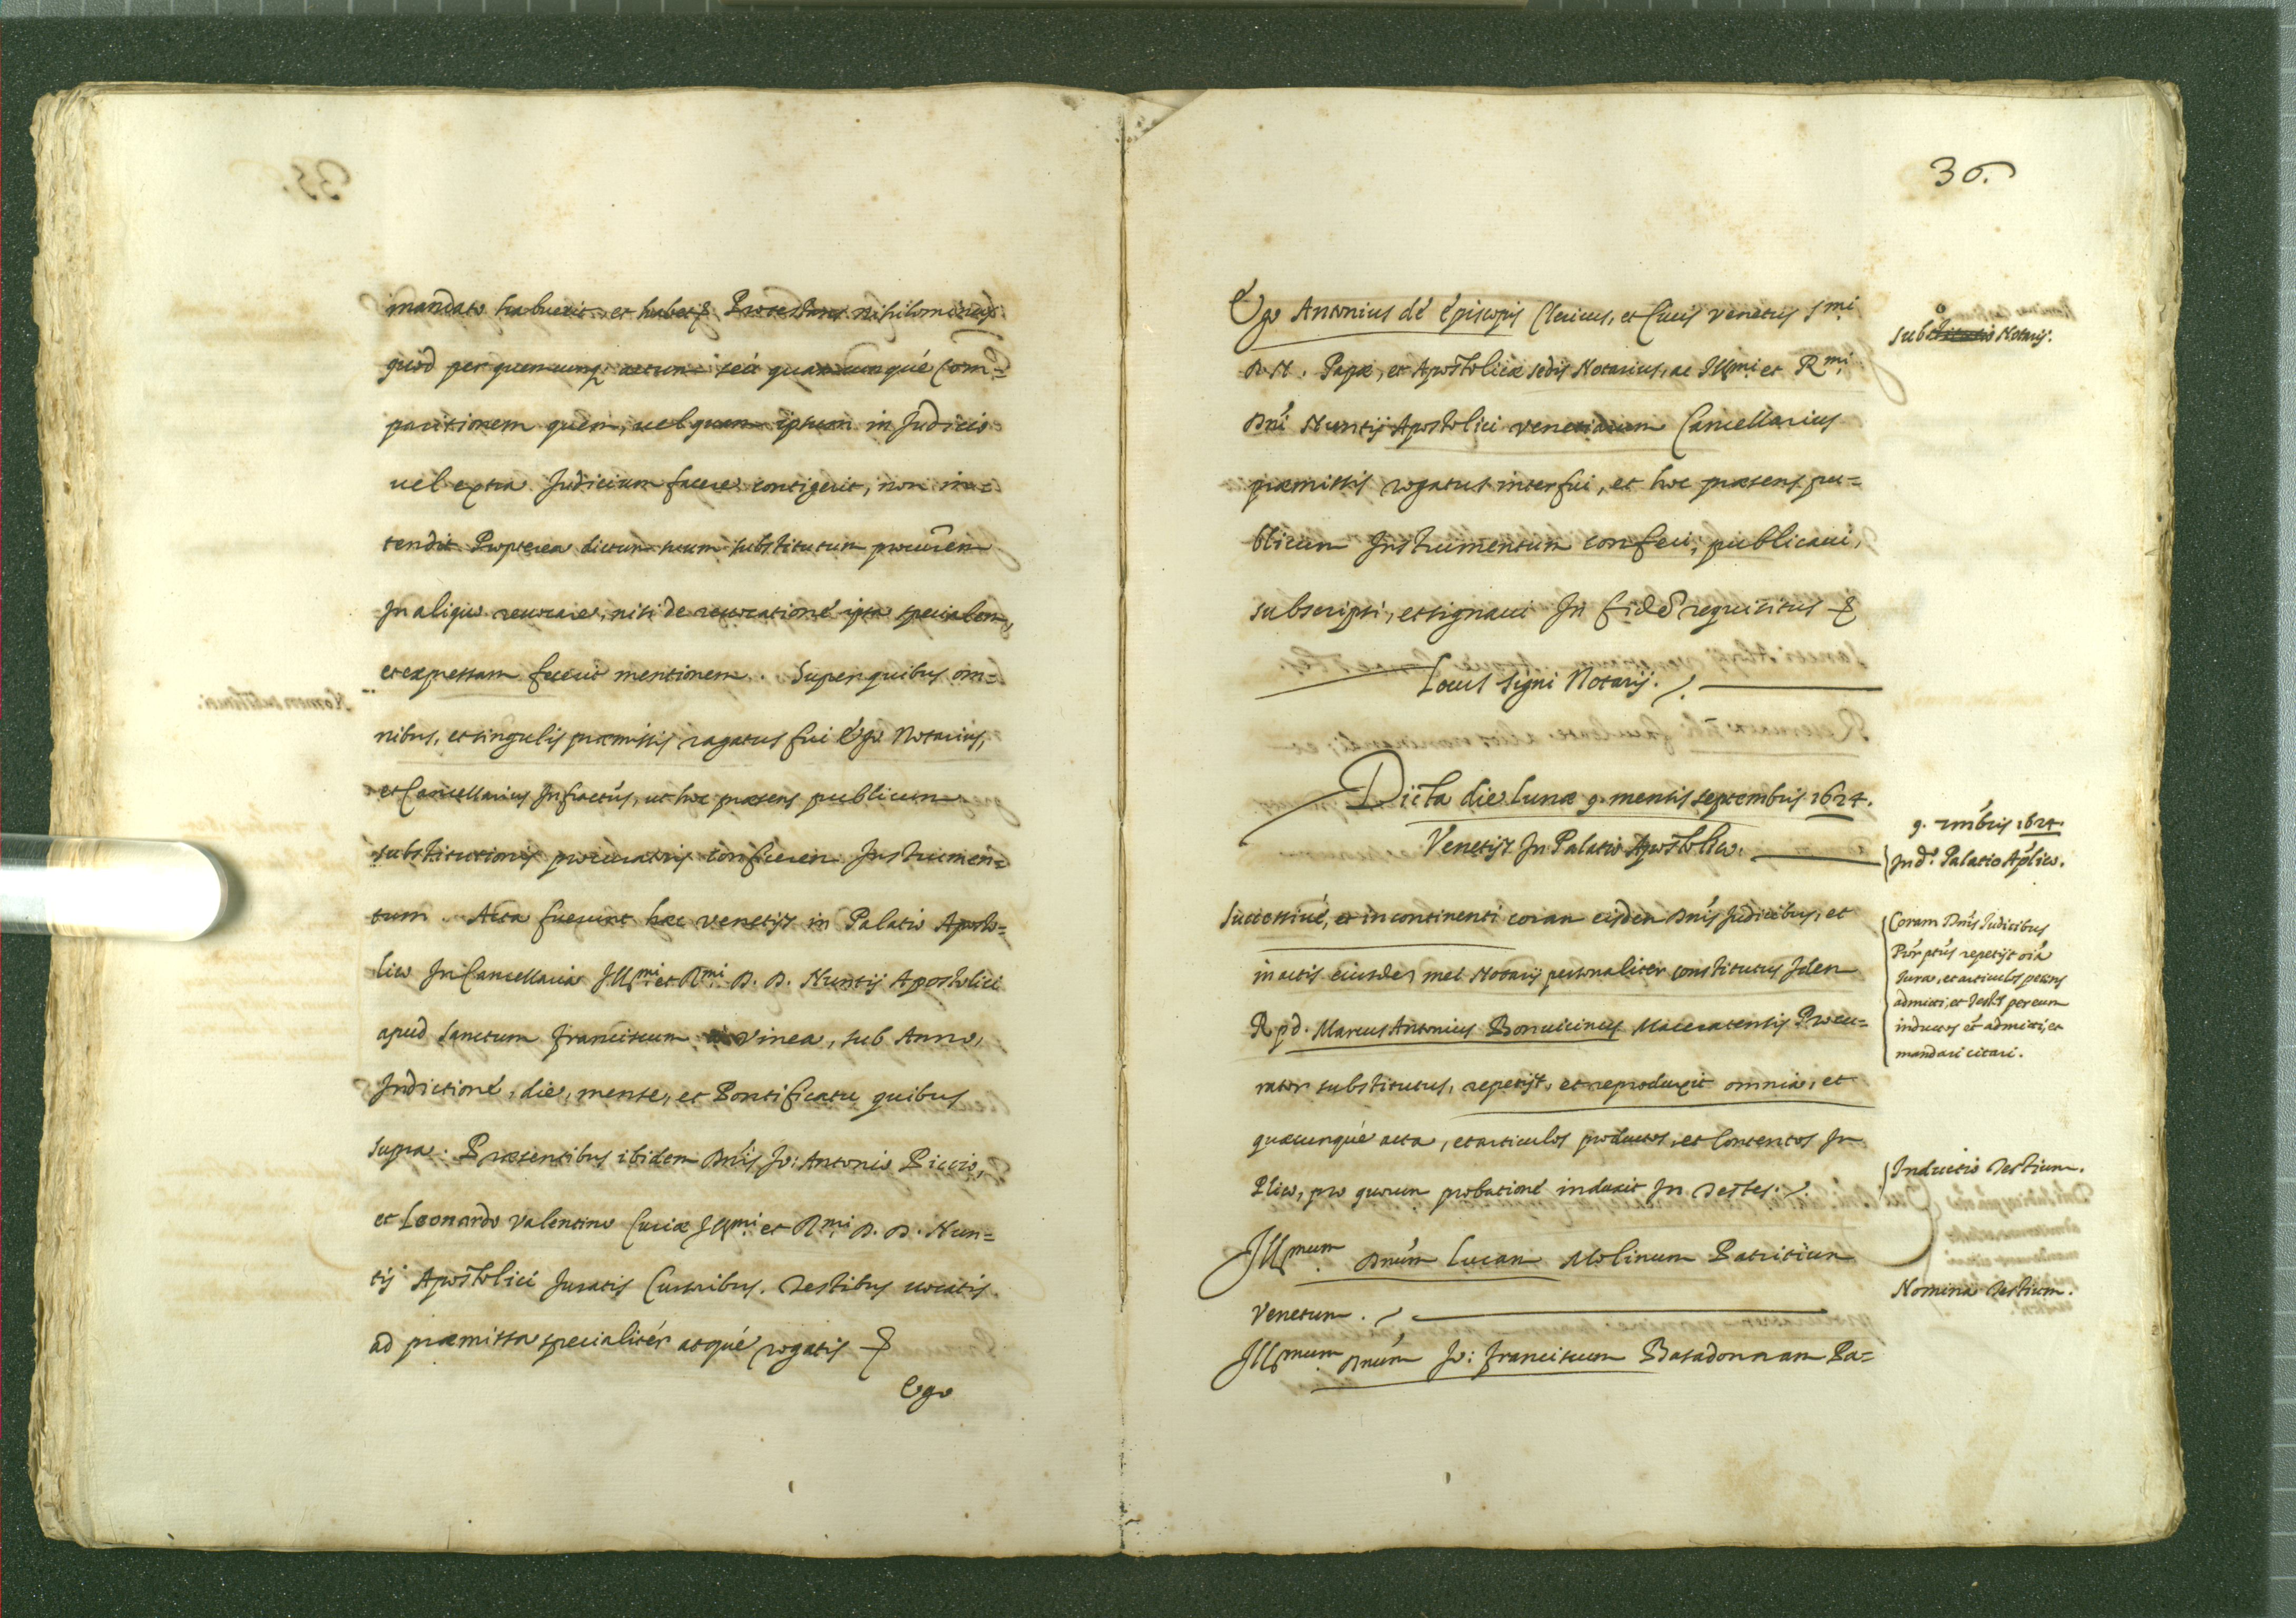 mandato habuerit, et habet & Protestans nihilominus
quod per quemcunq; actum seu quamcunque Com=
paritionem quem, uel quam ipsum in Judicio
uel extra Judicium facere contigerit, non in=
tendit Propterea dictum suum substitutum procurem
In aliquo reuocare, nisi de reuocatione ipsa specialem,
et expressam fecerit mentionem. Super quibus om=
nibus, et singulis præmissis rogatus fui Ego Notarius,
et Cancellarius Infractus, ut hoc præsens publicum
substitutionis procuratoris conficerem Instrumen=
tum. Acta fuerunt hæc Venetijs in Palatio Aposto=
lico In Cancellaria Jllmi. et Rmi. D. D. Nuntij Apostolici
apud Sanctum Franciscum Vinea, sub Anno,
Indictione, die, mense, et Pontificatu quibus
supra. Præsentibus ibidem Dnis Jo: Antonio Piccio,
et Leonardo Valentino Curiæ Jllmi. et Rmi. D. D. Nun=
tij Apostolici Juratis Cursoribus. Testibus uocatis
ad præmissa specialiter atque rogatis &
Ego
36.
Ego Antonius de Episcopis Clericus, et Ciuis Venetus Smi
D. N. Papæ, et Apostolicæ sedis Notarius, ac Illmi. et Rmi.
Dni Nuntij Apostolici Venetiarum Cancellarius
præmissis rogatus interfui, et hoc præsens pu=
blicum Instrumentum confeci, publicaui,
subscripsi, et signaui In fidē requisitus &
Subo Notarij.
Locus signi Notarij.
Dicta die Lunæ 9. mensis septembris 1624.
Venetijs In Palatio Apostolico.
9. Tmbris 1624.
In do. Palatio Aplico.
Successiue, et incontinenti coram eisdem Dnis Judicibus, et
in actis eiusdem met Notarij personaliter constitutus Idem
R. p d. Marcus Antonius Bonuicinus Maceratensis Procu=
rator substitutus, repetijt, et reproduxit omnia, et
quæcunque acta, et articulos productos, et contentos In
Plico, pro quorum probatione induxit In Testes.
Coram Dnis Judicibus
Pōr ptus repetijt oīa
Jura, et articulos petens
admitti, et Testes per eum
inductos et admitti, et
mandari citari.
Inductio Testium.
Jllmum. Dnum Lucam Molinum Patritium
Venetum.
Nomina Testium.
Jllmum. Dnum Jo: Franciscum Basadonnam Pa=